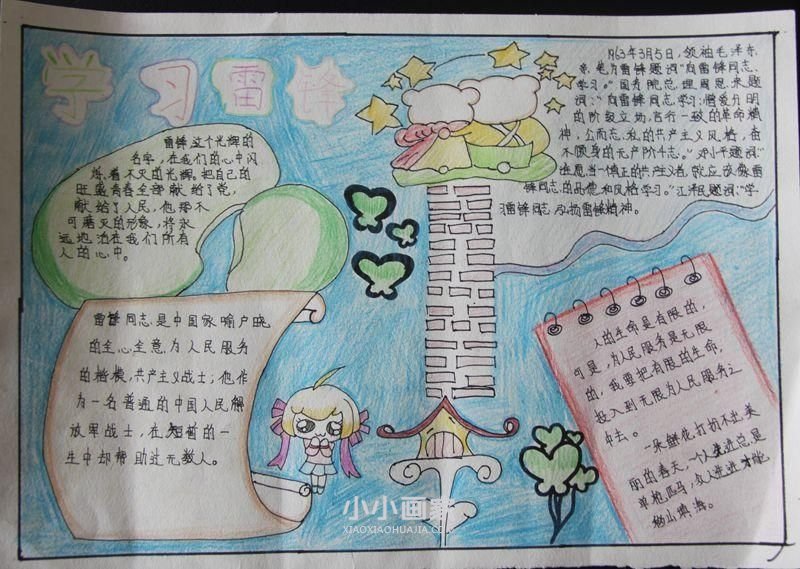 学习雷锋
雷锋这个光辉的
名字，在我们的心中闪
烁着不灭的光辉。把自己的
旺盛青春全部献给了党，
献给了人民，他那不
可磨灭的形象，将永
远地活在我们所有
人的心中。
雷锋同志是中国家喻户晓
的全心全意为人民服务
的楷模，共产主义战士；他作
为一名普通的中国人民解
放军战士，在短暂的一
生中却帮助过无数人。
1963年3月5日，领袖毛泽东
亲笔为雷锋题词“向雷锋同志
学习。”国务院总理周恩来题
词：“向雷锋同志学习：憎爱分明
的阶级立场，言行一致的革命精
神，公而忘私的共产主义风格，奋
不顾身的无产阶斗志。”邓小平题词：
谁愿当一个真正的共产主义者，就应该像雷
锋同志的品德和风格学习。”江泽民题词：“学
习雷锋同志，弘扬雷锋精神。
人的生命是有限的，
可是，为人民服务是无限
的，我要把有限的生命，
投入到无限为人民服务之
中去。
一朵鲜花打扮不出美
丽的春天，一个人先进总是
单枪匹马，众人先进才能
移山填海。
小小画家
XIAOXIAOHUAJIA.COM